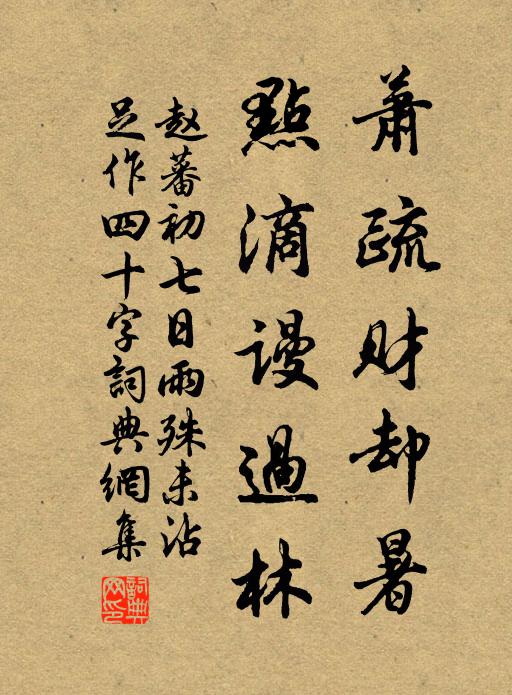 蕭疏財却暑
點滴謾過林
赵蕃初七日雨殊未沾
足作四十字詞典網集
詞典網印